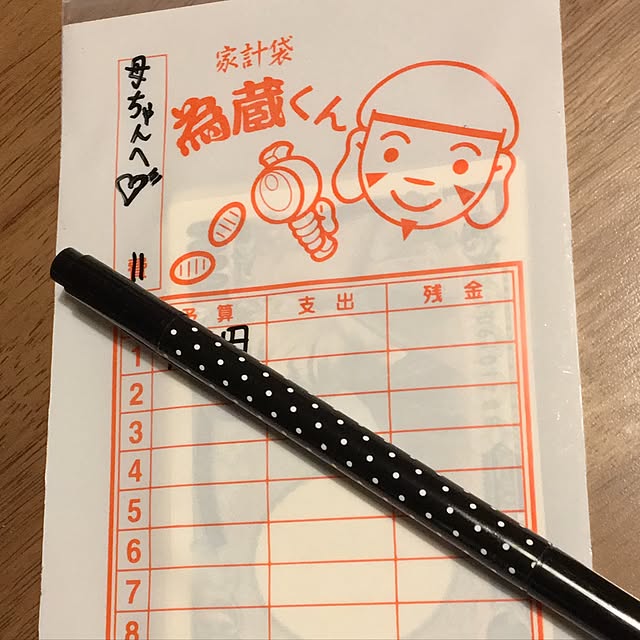 家計袋
為蔵くん
母ちゃんへ♡
11
予算 支出 残金
1 円
2
3
4
5
6
7
8